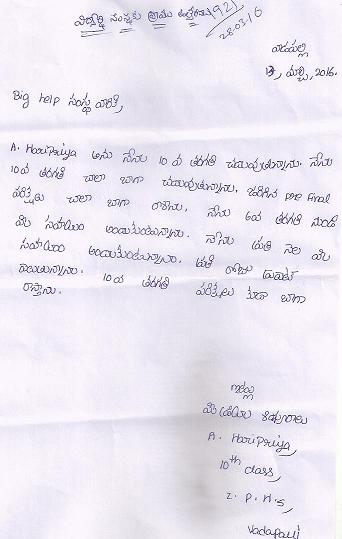 విద్యార్థి సంస్థకు వ్రాయు ఉత్తరము (92)
28.03.16
వాడపల్లి
13, మార్చి, 2016.
Big help సంస్థ వారికి,
A. HariPriya అను నేను 10 వ తరగతి చదువుతున్నాను. నేను
10వ తరగతి చాలా బాగా చదువుతున్నాను. జరిగిన pre final
పరీక్షలు చాలా బాగా రాశాను. నేను 6వ తరగతి నుండి
మీ సహాయం అందుకుంటున్నాను. నేను ప్రతి నెల మీ
సహాయం అందుకుంటున్నాను. ప్రతి రోజు ట్యూషన్
వెలుతున్నాను. 10వ తరగతి పరీక్షలు కూడా బాగా
రాస్తాను.
ఇట్లు
మీ ప్రియమైన విద్యార్థి
A. HariPriya,
10th class,
Z. P. H. S,
Vadapalli